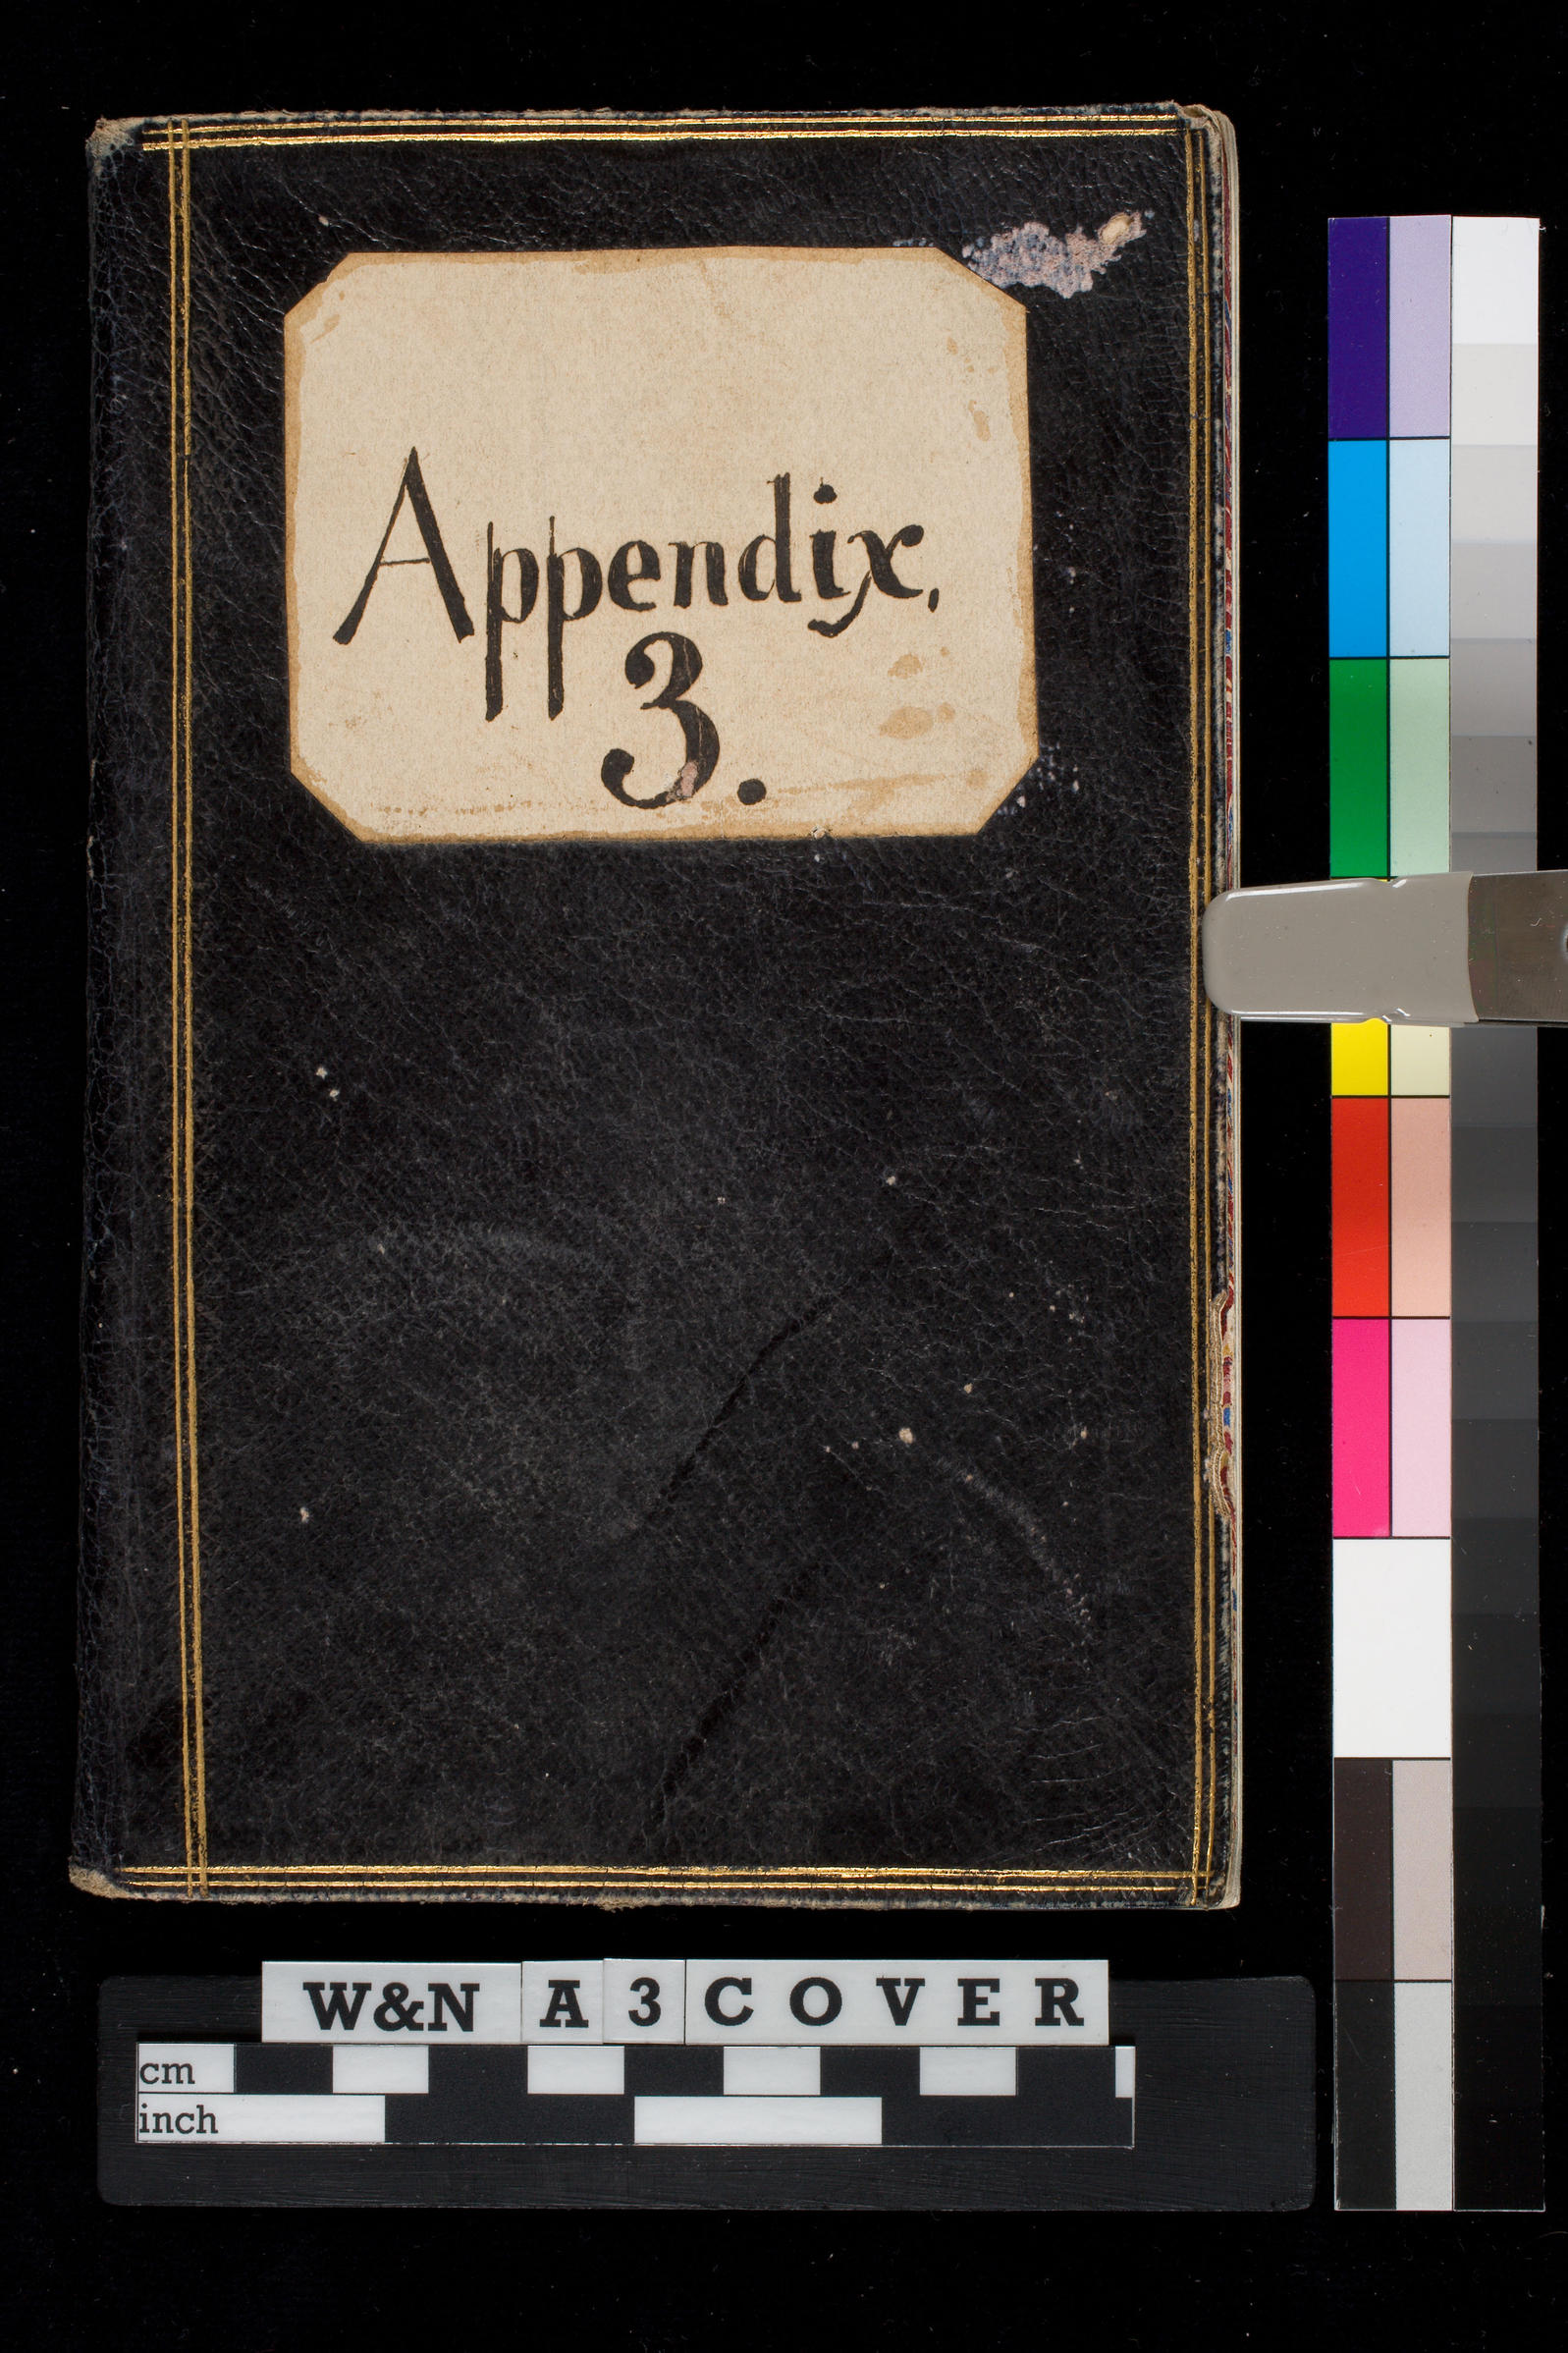 Appendix,
3.
W&N A 3 COVER
cm
inch